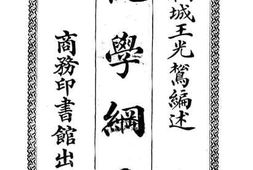 城王光鶩編述
學綱
商務印書館出